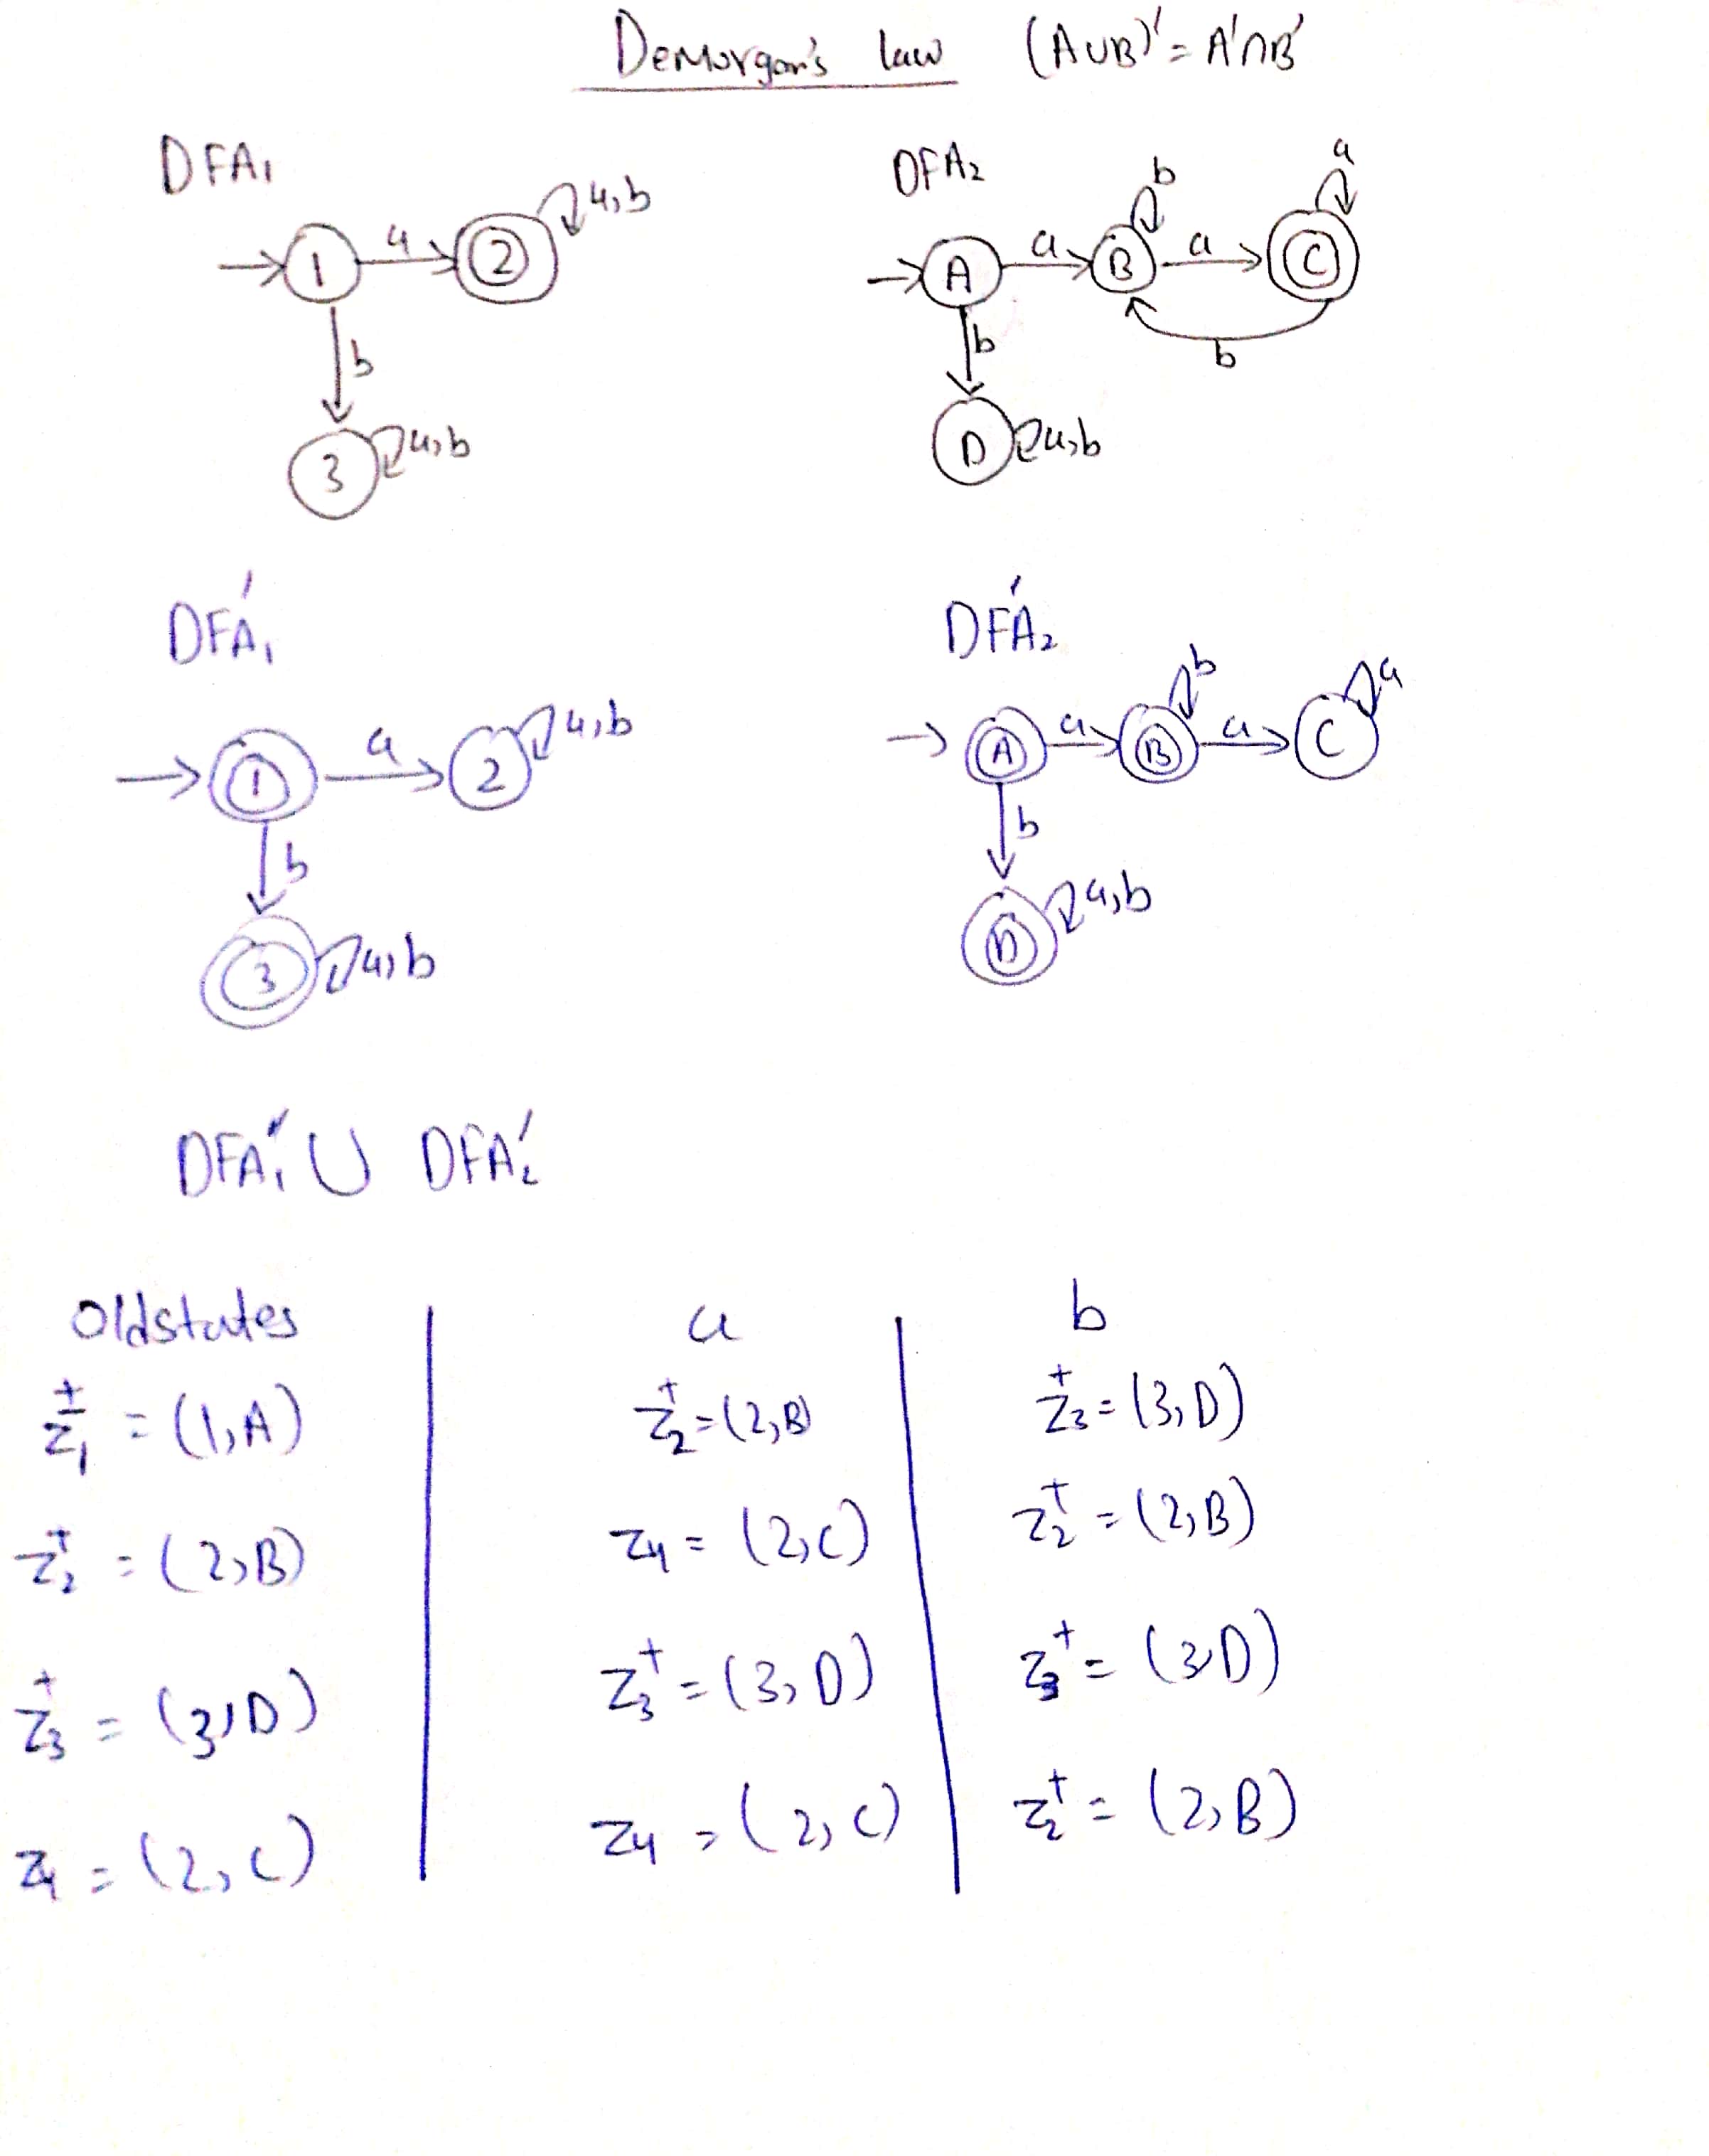 DeMorgan's law (A∪B)' = A'∩B'
DFA₁
DFA₂
1 a 2 a,b
b
3 a,b
A a B b a C a
b
b
D a,b
DFA₁'
DFA₂'
1 a 2 a,b
b
3 a,b
A a B b a C a
b
D a,b
DFA₁' ∪ DFA₂'
Oldstates a b
Z₁± = (1,A) Z₂⁺ = (2,B) Z₃⁺ = (3,D)
Z₂⁺ = (2,B) Z₄ = (2,C) Z₂⁺ = (2,B)
Z₃⁺ = (3,D) Z₃⁺ = (3,D) Z₃⁺ = (3,D)
Z₄ = (2,C) Z₄ = (2,C) Z₂⁺ = (2,B)